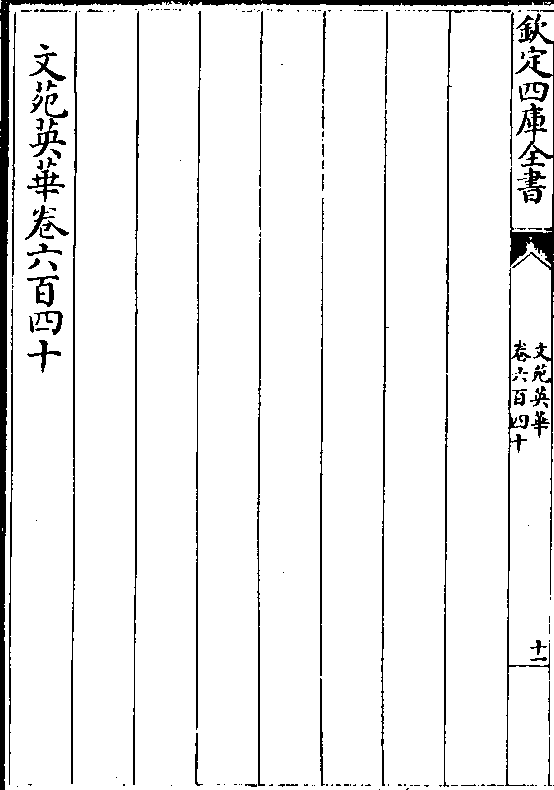 欽定四庫全書
文苑英華
卷六百四十
十一
文苑英華卷六百四十